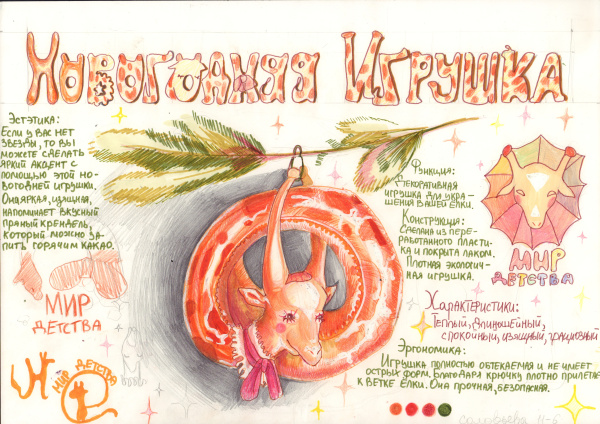 Новогодняя Игрушка
Эстетика:
Если у вас нет
звезды, то вы
можете сделать
яркий акцент с
помощью этой но-
вогодней игрушки.
Она яркая, изящная,
напоминает вкусный
пряный крендель,
который можно за-
пить горячим какао.
МИР
ДЕТСТВА
МИР ДЕТСТВА
Функция:
Декоративная
игрушка для укра-
шения вашей ёлки.
Конструкция:
Сделана из пере-
работанного пласти-
ка и покрыта лаком.
Плотная экологич-
ная игрушка.
МИР
ДЕТСТВА
Характеристики:
Теплый, длинношейный,
спокойный, изящный, грациозный
Эргономика:
Игрушка полностью обтекаемая и не имеет
острых форм. Благодаря крючку плотно прилегает
к ветке ёлки. Она прочная, безопасная.
Соловьева 11-5